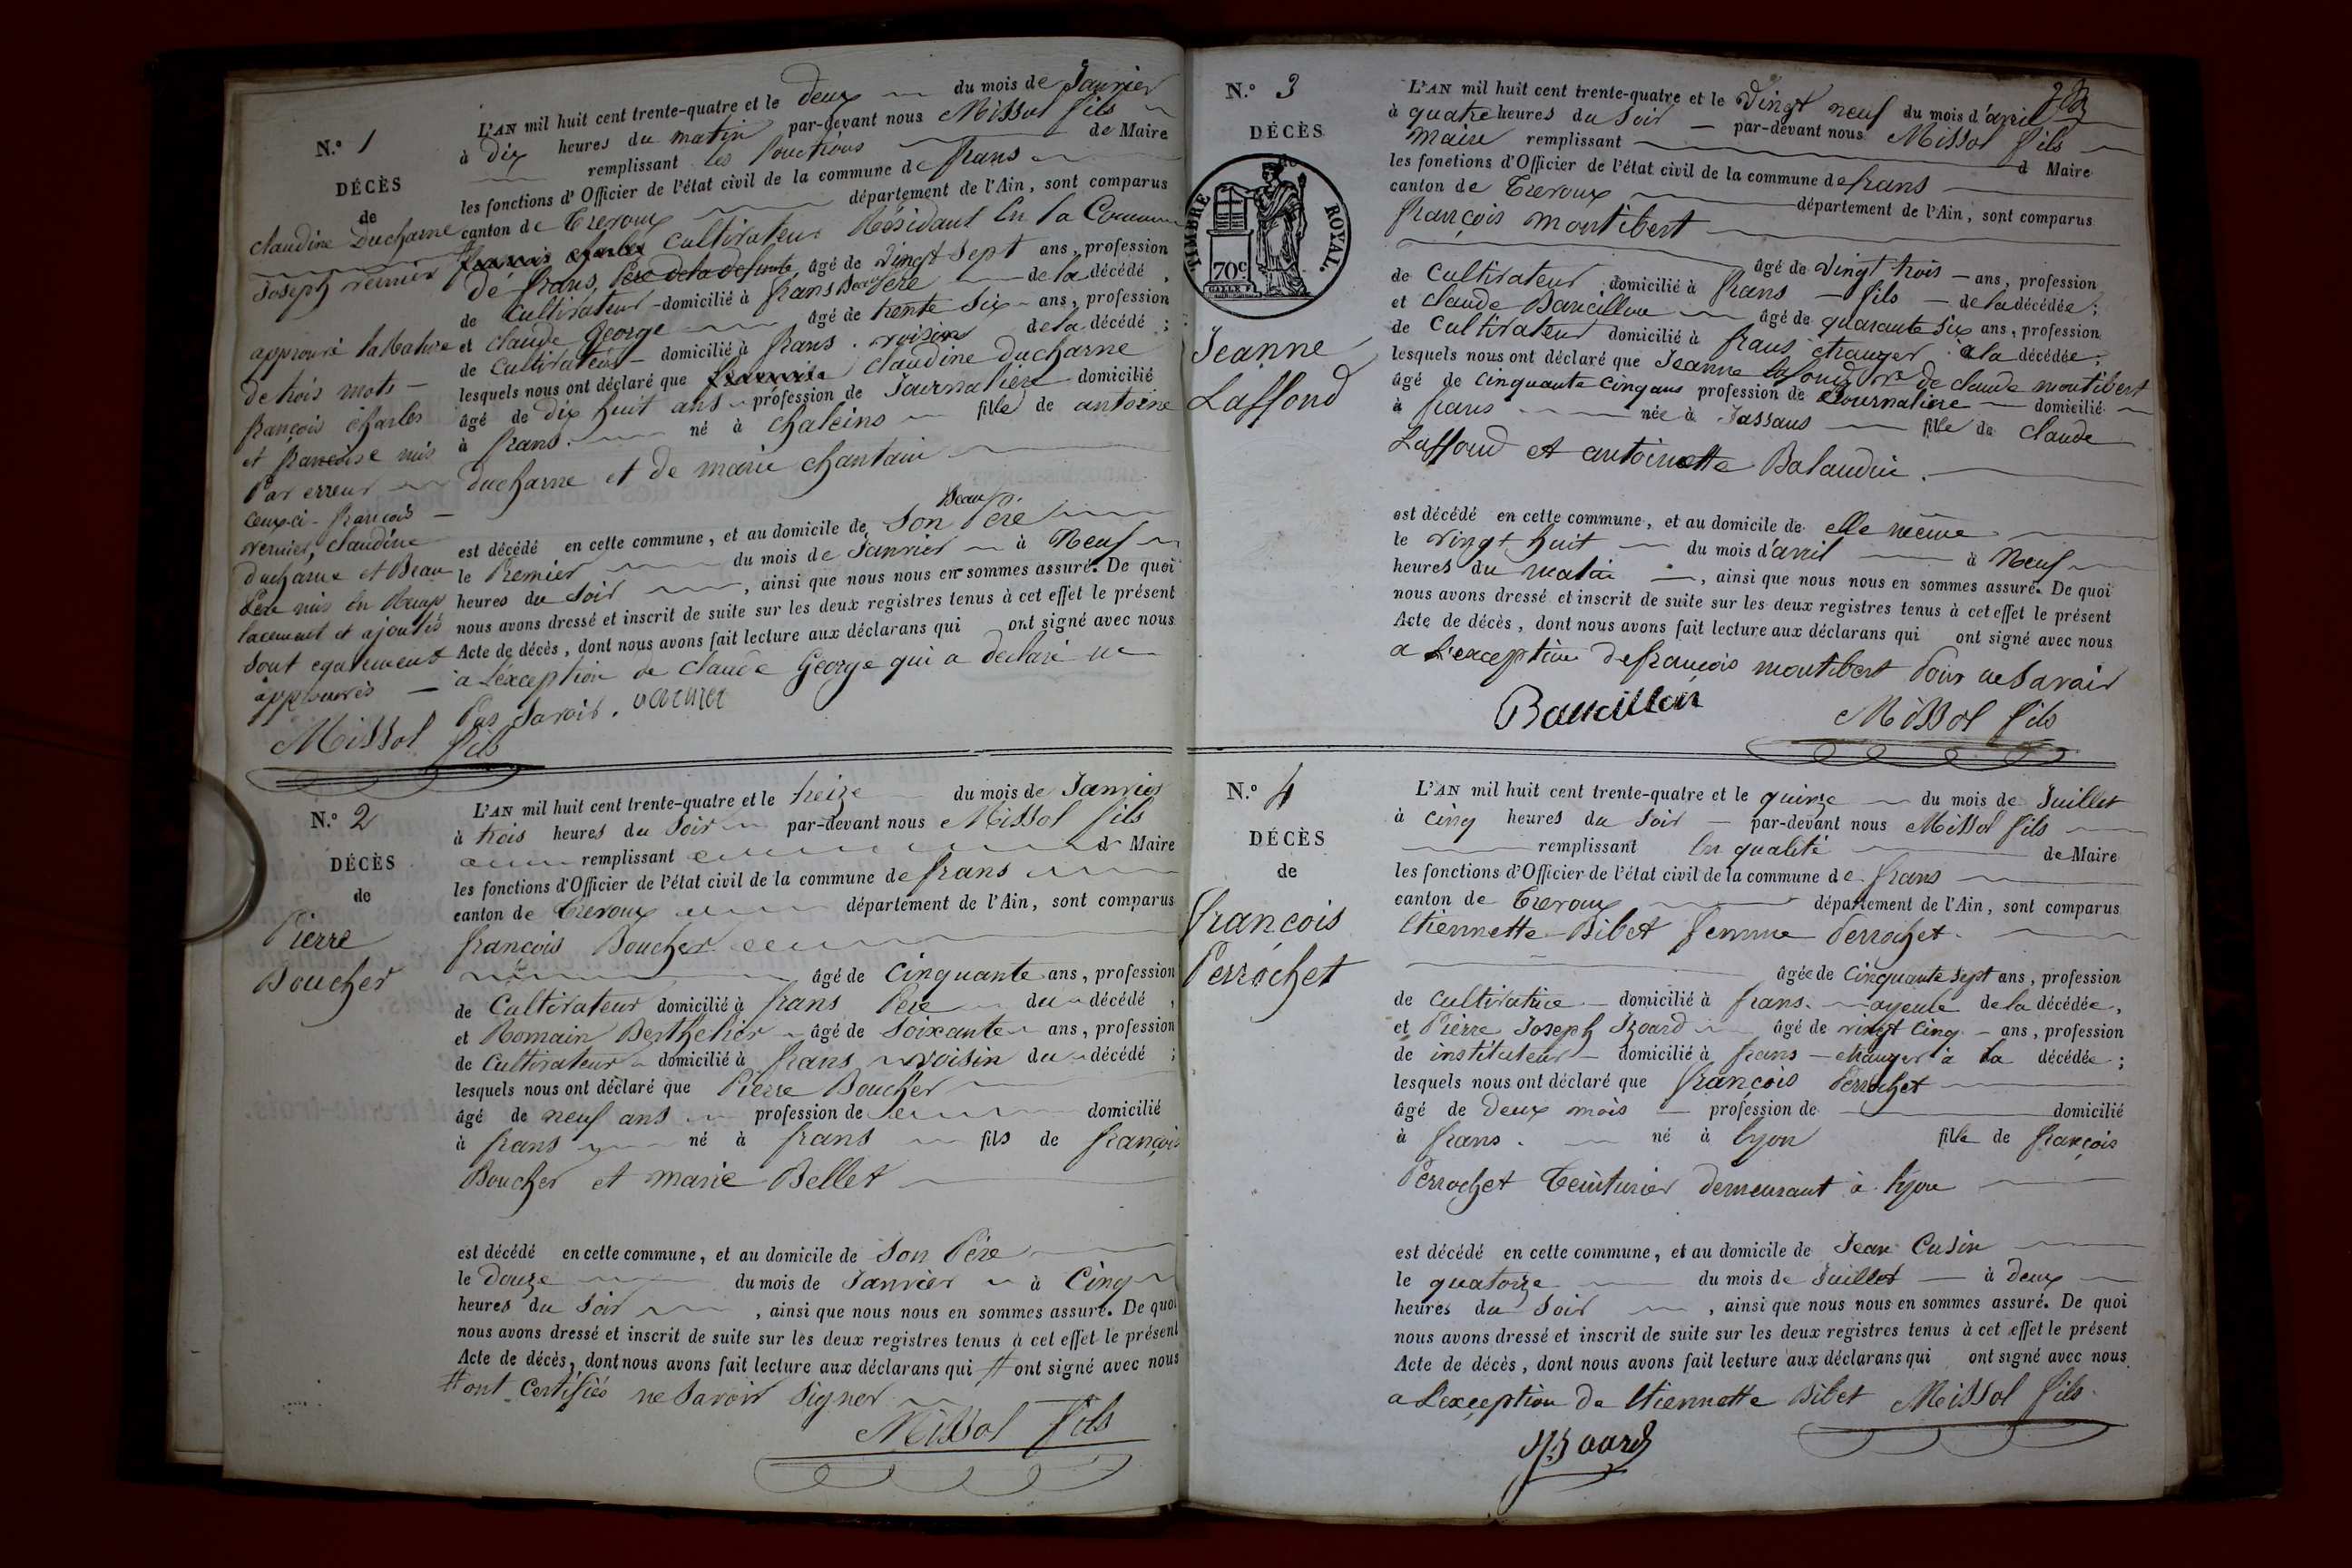 N.º 1
DÉCÈS
de
Claudine Ducharne
Joseph vernier
approuvé la rature
de trois mots —
françois charles
et francoise mis
Par erreur
ceux-ci - françois —
vernier, claudine
ducharne et Beau
Pere mis en Remp
lacement et ajoutés
sont egalement
approuvés —
Missol fils
L'AN mil huit cent trente-quatre et le deux du mois de Janvier
à dix heures du matin par-devant nous Missol fils
remplissant les fonctions de Maire
les fonctions d'Officier de l'état civil de la commune de frans
canton de Trevoux département de l'Ain, sont comparus
françois charles cultivateur Résidant en la Commune
de frans, Pere de la defunte, âgé de vingt sept ans, profession
de Cultivateur domicilié à frans Beau Pere de la décédé,
et claude George âgé de trente six ans, profession
de Cultivateur domicilié à frans. voisins de la décédé;
lesquels nous ont déclaré que francoise claudine ducharne
âgé de dix huit ans profession de Journaliere domicilié
à frans. né à chaleins fille de antoine
ducharne et de marie chantain
est décédé en cette commune, et au domicile de son Beau Pere
le Premier du mois de Janvier à Neuf
heures du soir, ainsi que nous nous en sommes assuré. De quoi
nous avons dressé et inscrit de suite sur les deux registres tenus à cet effet le présent
Acte de décès, dont nous avons fait lecture aux déclarans qui ont signé avec nous
a L'exception de claude George qui a declaré ne
Pas savoir. vernier
N.º 2
DÉCÈS
de
Pierre
Boucher
L'AN mil huit cent trente-quatre et le treize du mois de Janvier
à trois heures du soir par-devant nous Missol fils
remplissant d Maire
les fonctions d'Officier de l'état civil de la commune de frans
canton de Trevoux département de l'Ain, sont comparus
françois Boucher
âgé de Cinquante ans, profession
de Cultivateur domicilié à frans Pere du décédé,
et Romain Berthelier âgé de soixante ans, profession
de Cultivateur domicilié à frans voisin du décédé;
lesquels nous ont déclaré que Pierre Boucher
âgé de neuf ans profession de domicilié
à frans né à frans fils de françois
Boucher et marie Bellet
est décédé en cette commune, et au domicile de son Pére
le douze du mois de Janvier à Cinq
heures du soir, ainsi que nous nous en sommes assuré. De quoi
nous avons dressé et inscrit de suite sur les deux registres tenus à cet effet le présent
Acte de décès, dont nous avons fait lecture aux déclarans qui # ont signé avec nous
# ont certifiés ne savoir signer
Missol fils
N.º 3
DÉCÈS
de
TIMBRE ROYAL.
70c
Jeanne
Laffond
L'AN mil huit cent trente-quatre et le vingt neuf du mois d'avril
à quatre heures du soir — par-devant nous Missol fils
maire remplissant d Maire
les fonctions d'Officier de l'état civil de la commune de frans
canton de Trevoux département de l'Ain, sont comparus
françois montibert
âgé de vingt trois — ans, profession
de Cultivateur domicilié à frans — fils — de la décédée;
et claude Bancillon âgé de quarante six ans, profession
de Cultivateur domicilié à frans etranger à la décédée;
lesquels nous ont déclaré que Jeanne Laffond ve de claude montibert
âgé de cinquante cinq ans profession de Journaliere domicilié
à frans née à Jassans fille de claude
Laffond et antoinette Balandin.
est décédé en cette commune, et au domicile de elle même
le vingt huit du mois d'avril à Neuf
heures du matin, ainsi que nous nous en sommes assuré. De quoi
nous avons dressé et inscrit de suite sur les deux registres tenus à cet effet le présent
Acte de décès, dont nous avons fait lecture aux déclarans qui ont signé avec nous
a L'exception de françois montibert Pour ne savoir
Bancillon Missol fils
N.º 4
DÉCÈS
de
françois
Perrochet
L'AN mil huit cent trente-quatre et le quinze du mois de Juillet
à cinq heures du soir — par-devant nous Missol fils
remplissant en qualité de Maire
les fonctions d'Officier de l'état civil de la commune de frans
canton de Trevoux département de l'Ain, sont comparus
Etiennette Bibet femme Perrochet.
âgée de Cinquante sept ans, profession
de cultivatrice — domicilié à frans. ayeule de la décédée,
et Pierre Joseph Izoard âgé de vingt cinq — ans, profession
de instituteur — domicilié à frans — etranger à la décédée;
lesquels nous ont déclaré que françois Perrochet
âgé de deux mois — profession de domicilié
à frans. né à lyon fille de françois
Perrochet teinturier demeurant à lyon
est décédé en cette commune, et au domicile de Jean Cusin
le quatorze du mois de Juillet — à deux
heures du soir, ainsi que nous nous en sommes assuré. De quoi
nous avons dressé et inscrit de suite sur les deux registres tenus à cet effet le présent
Acte de décès, dont nous avons fait lecture aux déclarans qui ont signé avec nous
a L'exception de Etiennette Bibet Missol fils
Izoard